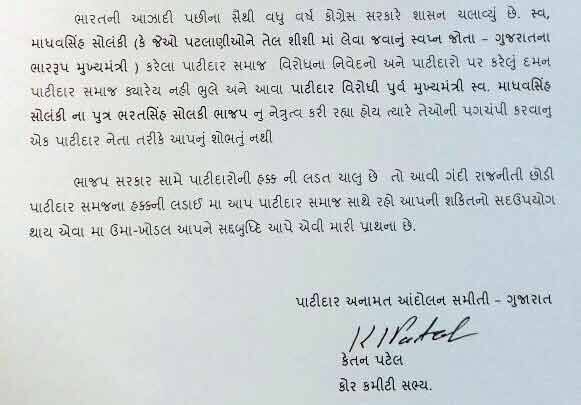 ભારતની આઝાદી પછીના સૈથી વધુ વર્ષ કોંગ્રેસ સરકારે શાસન ચલાવ્યું છે. સ્વ,
માધવસિંહ સોલંકી (કે જેઓ પટલાણીઓને તેલ શીશી માં લેવા જવાનું સ્વપ્ન જોતા – ગુજરાતના
ભારરૂપ મુખ્યમંત્રી ) કરેલા પાટીદાર સમાજ વિરોધના નિવેદનો અને પાટીદારો પર કરેલું દમન
પાટીદાર સમાજ ક્યારેય નહી ભુલે અને આવા પાટીદાર વિરોધી પુર્વ મુખ્યમંત્રી સ્વ. માધવસિંહ
સોલંકી ના પુત્ર ભરતસિંહ સોલકી ભાજપ નુ નેત્રુત્વ કરી રહ્યા હોય ત્યારે તેઓની પગચંપી કરવાનુ
એક પાટીદાર નેતા તરીકે આપનું શોભતું નથી
ભાજપ સરકાર સામે પાટીદારોની હક્ક ની લડત ચાલુ છે તો આવી ગંદી રાજનીતી છોડી
પાટીદાર સમજના હક્કની લડાઈ મા આપ પાટીદાર સમાજ સાથે રહો આપની શકિતનો સદઉપયોગ
થાય એવા મા ઉમા-ખોડલ આપને સદ્દબુધ્ધિ આપે એવી મારી પ્રાથના છે.
પાટીદાર અનામત આંદોલન સમીતી – ગુજરાત
K Patel
કેતન પટેલ
કોર કમીટી સભ્ય.